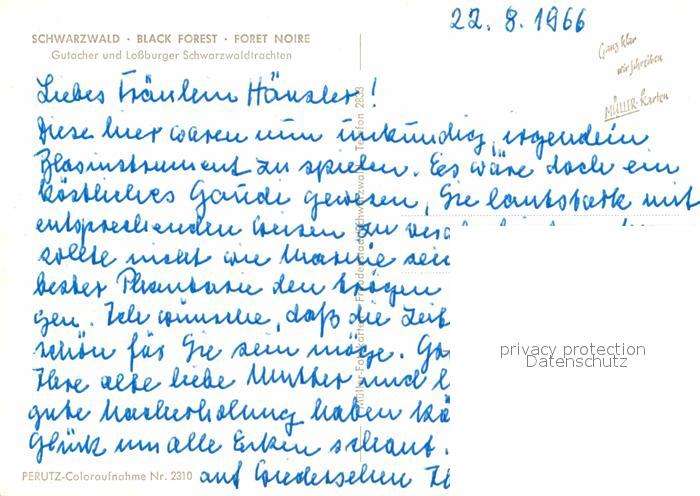 22. 8. 1966
SCHWARZWALD · BLACK FOREST · FORET NOIRE
Gutacher und Loßburger Schwarzwaldtrachten
Ganz klar
wir schreiben
MÜLLER-Karten
Liebes Fräulein Hänsler!
Diese hier waren nun unkundig, irgendein
Blasinstrument zu spielen. Es wäre doch ein
köstliches Gaudi gewesen, Sie lautstark mit
entsprechenden Weisen zu
sollte nicht wie
bester Phantasie den
gen. Ich wünsche, daß die Zeit
schön für Sie sein möge.
Ihre alte liebe Mutter und
gute Nacherholung haben
Glück um alle Ecken schaut.
auf Wiedersehen
PERUTZ-Coloraufnahme Nr. 2310
privacy protection
Datenschutz